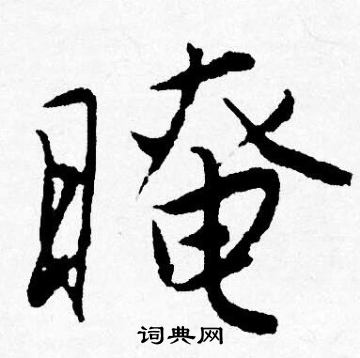 晻
词典网